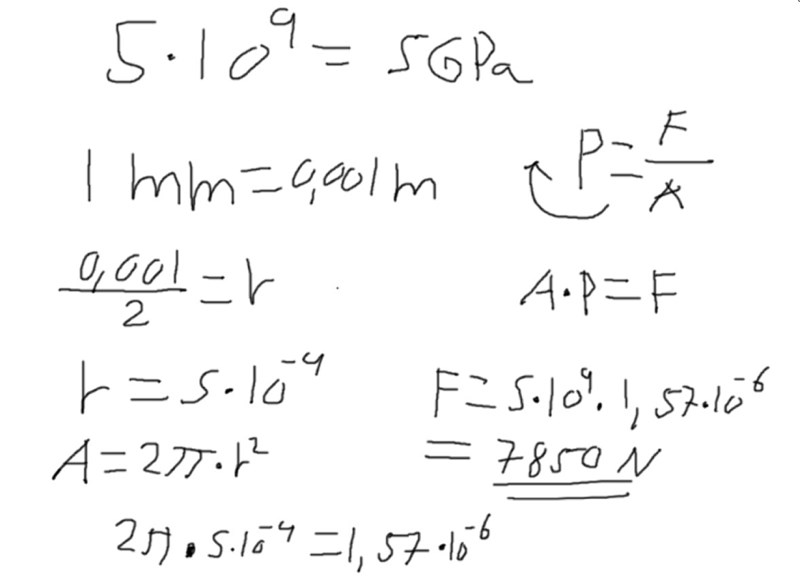 5·10⁹ = 5GPa
1 mm = 0,001 m
P = F/A
0,001/2 = r
A·P = F
r = 5·10⁻⁴
F = 5·10⁹·1,57·10⁻⁶
A = 2π·r²
= 7850 N
2π·5·10⁻⁴ = 1,57·10⁻⁶